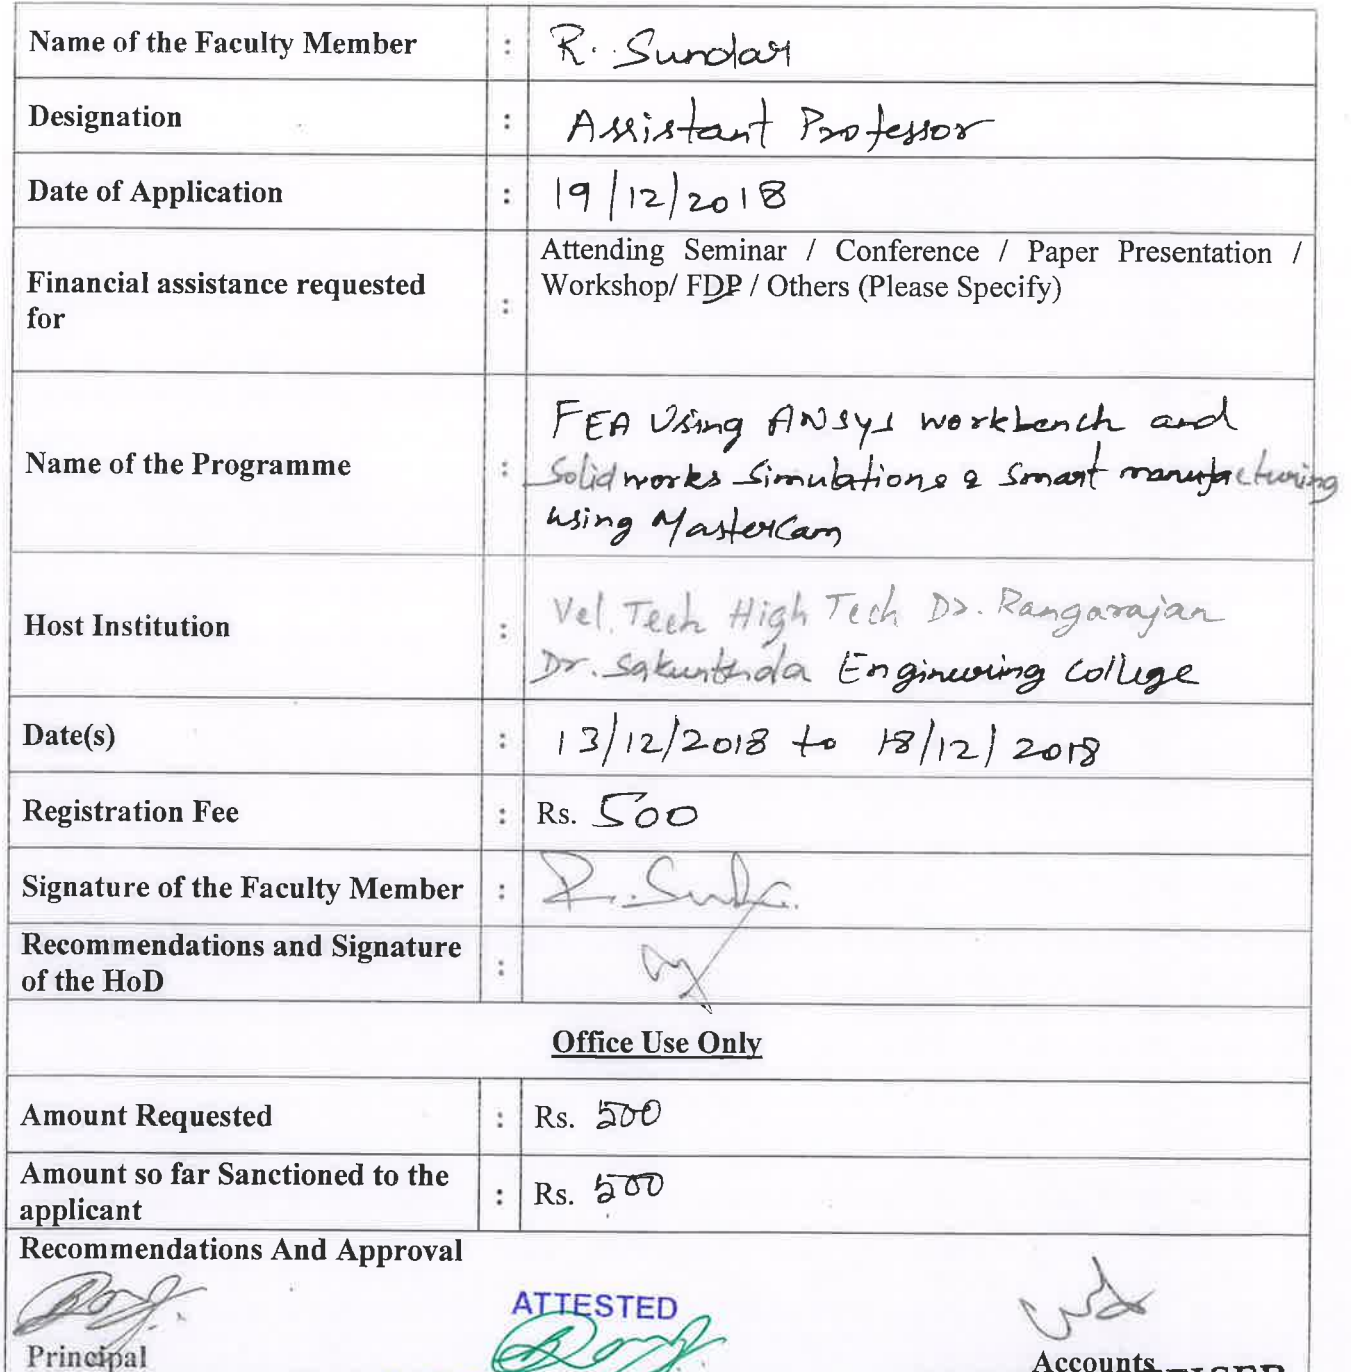 Name of the Faculty Member : R. Sundar
Designation : Assistant Professor
Date of Application : 19/12/2018
Financial assistance requested for : Attending Seminar / Conference / Paper Presentation /
Workshop/ FDP / Others (Please Specify)
Name of the Programme : FEA Using ANSYS workbench and
Solidworks Simulations & Smart manufacturing
using MasterCam
Host Institution : Vel Tech High Tech Dr. Rangarajan
Dr. Sakunthala Engineering College
Date(s) : 13/12/2018 to 18/12/2018
Registration Fee : Rs. 500
Signature of the Faculty Member : R. Sundar
Recommendations and Signature
of the HoD :
Office Use Only
Amount Requested : Rs. 500
Amount so far Sanctioned to the
applicant : Rs. 500
Recommendations And Approval
ATTESTED
Principal
Accounts